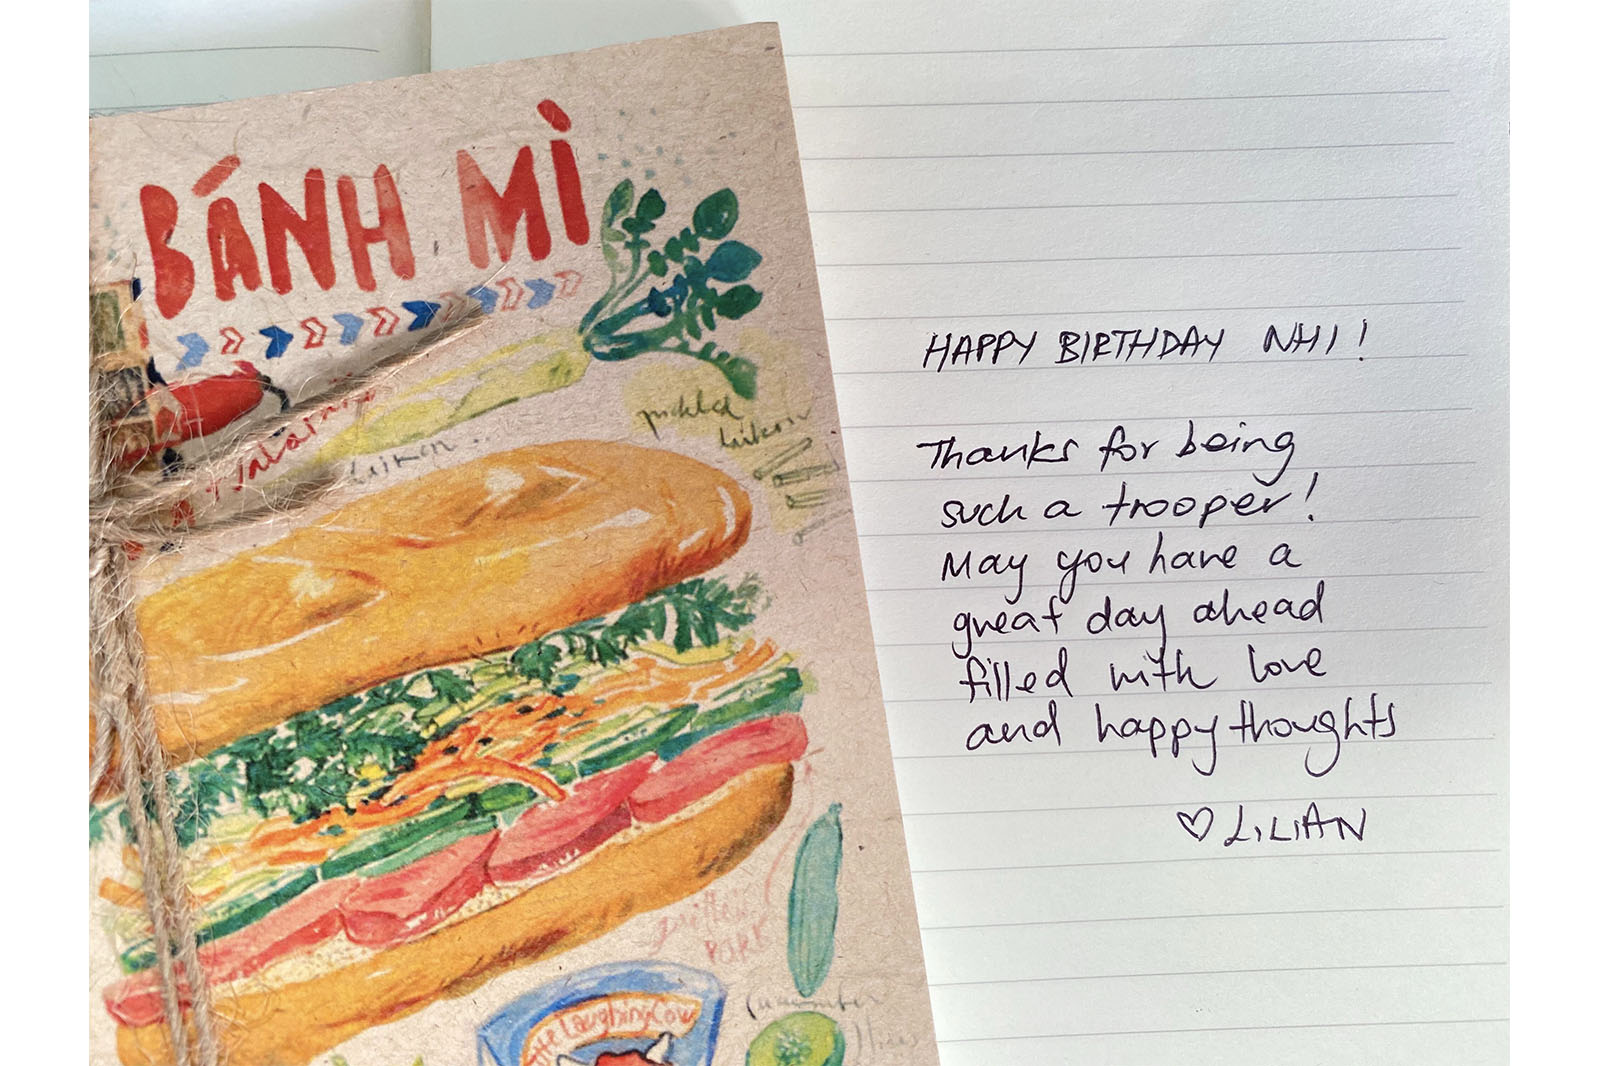 BÁNH MÌ
pickled
daikon
daikon...
The Laughing Cow
PORK
cucumber
HAPPY BIRTHDAY NHI!
Thanks for being
such a trooper!
May you have a
great day ahead
filled with love
and happy thoughts
♡ LILIAN